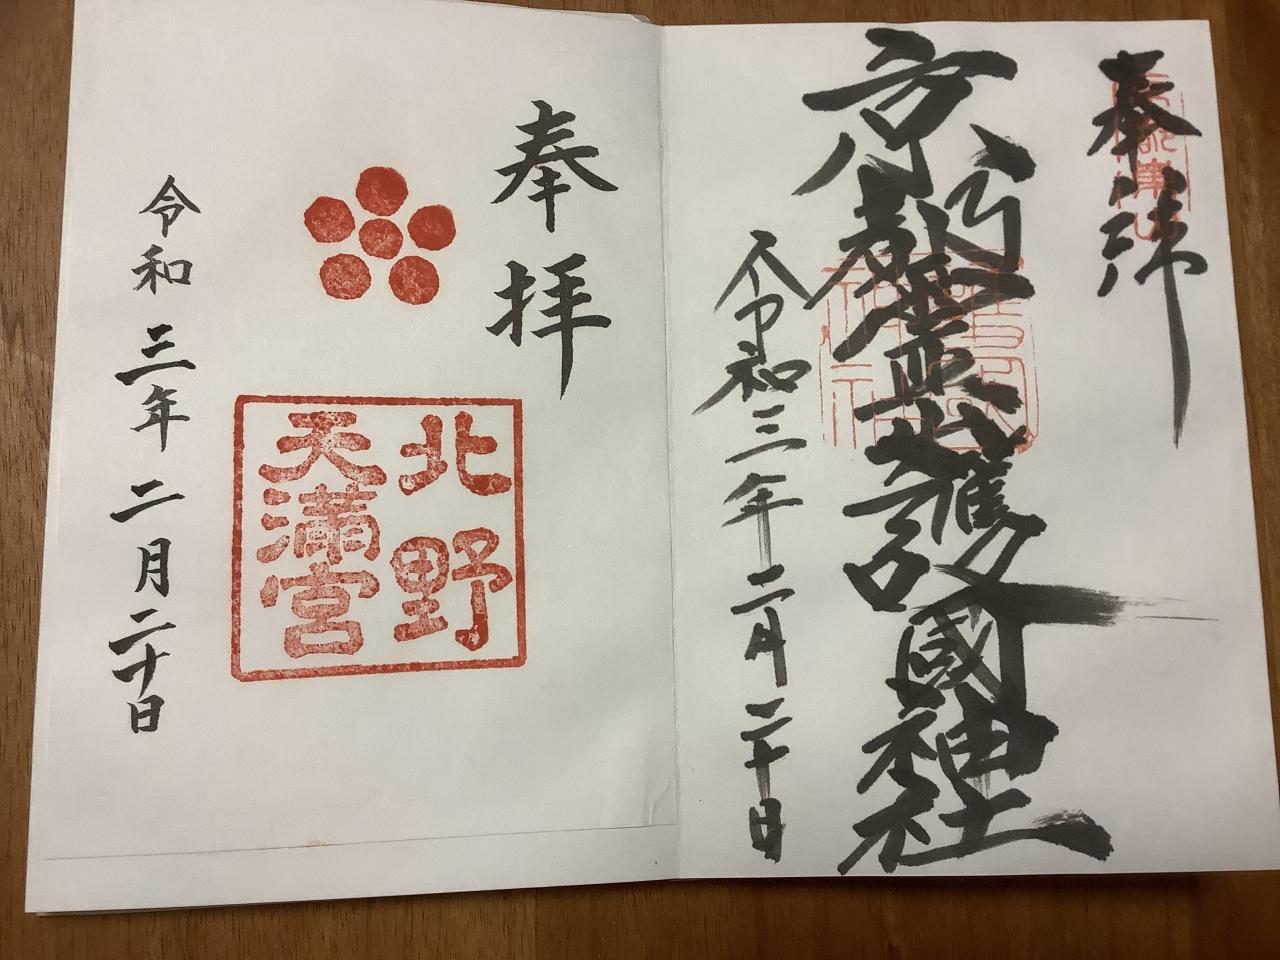 奉拝
京都霊山護國神社
令和三年二月二十日
奉拝
北野
天満宮
令和三年二月二十日